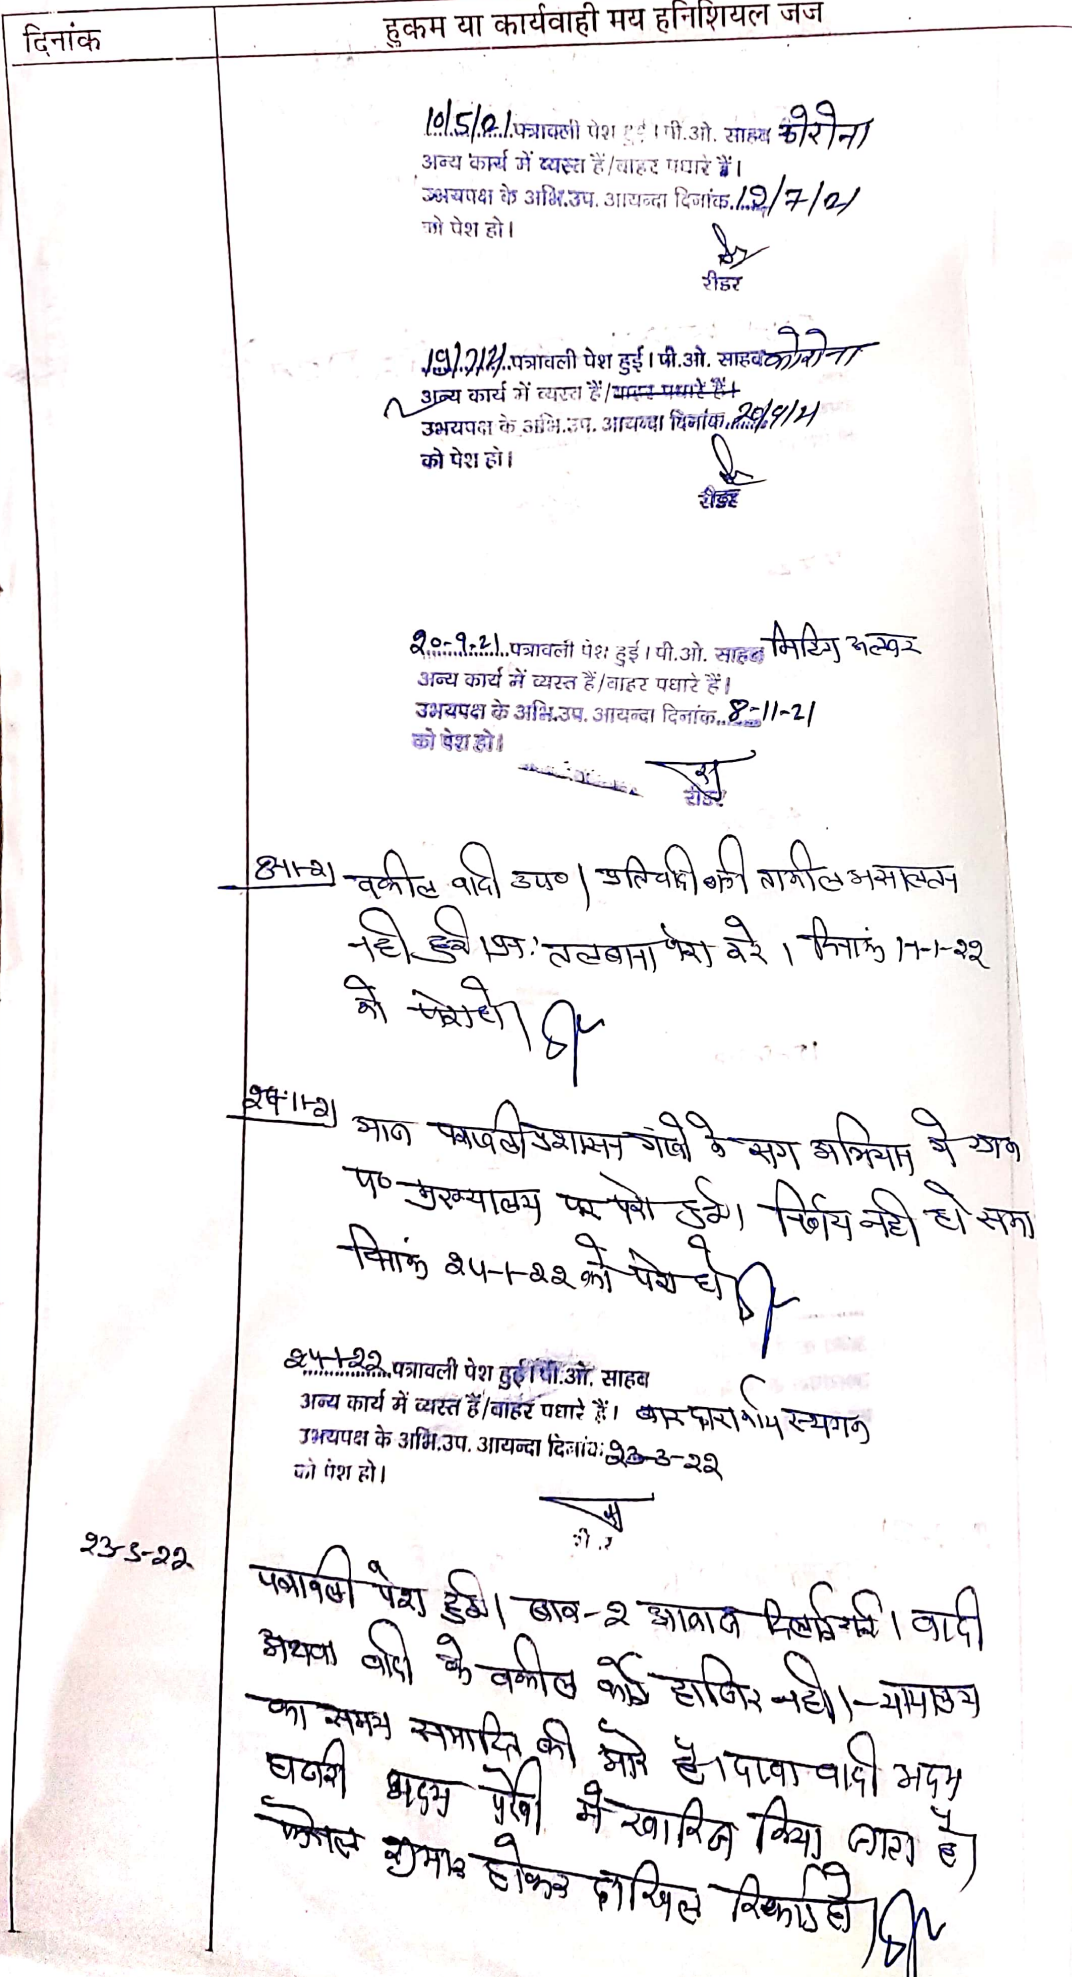 दिनांक
हुकम या कार्यवाही मय इनिशियल जज
10/5/21 पत्रावली पेश हुई । पी.ओ. साहब कोरोना
अन्य कार्य में व्यस्त हैं/बाहर पधारे हैं।
उभयपक्ष के अभि.उप. आयन्दा दिनांक 19/7/21
को पेश हो।
रीडर
19/7/21 पत्रावली पेश हुई । पी.ओ. साहब कोरोना
अन्य कार्य में व्यस्त हैं/बाहर पधारे हैं।
उभयपक्ष के अभि.उप. आयन्दा दिनांक 20/9/21
को पेश हो।
रीडर
20-9-21 पत्रावली पेश हुई । पी.ओ. साहब मिटिंग अलवर
अन्य कार्य में व्यस्त हैं/बाहर पधारे हैं।
उभयपक्ष के अभि.उप. आयन्दा दिनांक 8-11-21
को पेश हो।
रीडर
8-11-21 वकील वादी उप० । प्रतिवादी की तामील असालतन
नही हुई । पुनः तलबाना पेश करे । दिनांक 17-1-22
को पेश हो।
24-11-21 आज पत्रावली प्रशासन गांवो के संग अभियान मे ग्राम
पं० मुख्यालय पर पेश हुई। निर्णय नही हो सका
दिनांक 24-1-22 को पेश हो
24-1-22 पत्रावली पेश हुई। पी.ओ. साहब
अन्य कार्य में व्यस्त हैं/बाहर पधारे हैं। बार द्वारा कार्य स्थगन
उभयपक्ष के अभि.उप. आयन्दा दिनांक 23-3-22
को पेश हो।
23-3-22
पत्रावली पेश हुई। बार-२ आवाज दिलाई गई। वादी
अथवा वादी के वकील कोई हाजिर नही। न्यायालय
का समय समाप्ति की ओर है। दावा वादी अदम
हाजरी अदम पैरवी मे खारिज किया जाता है।
फैसल शुमार होकर दाखिल रिकार्ड हो